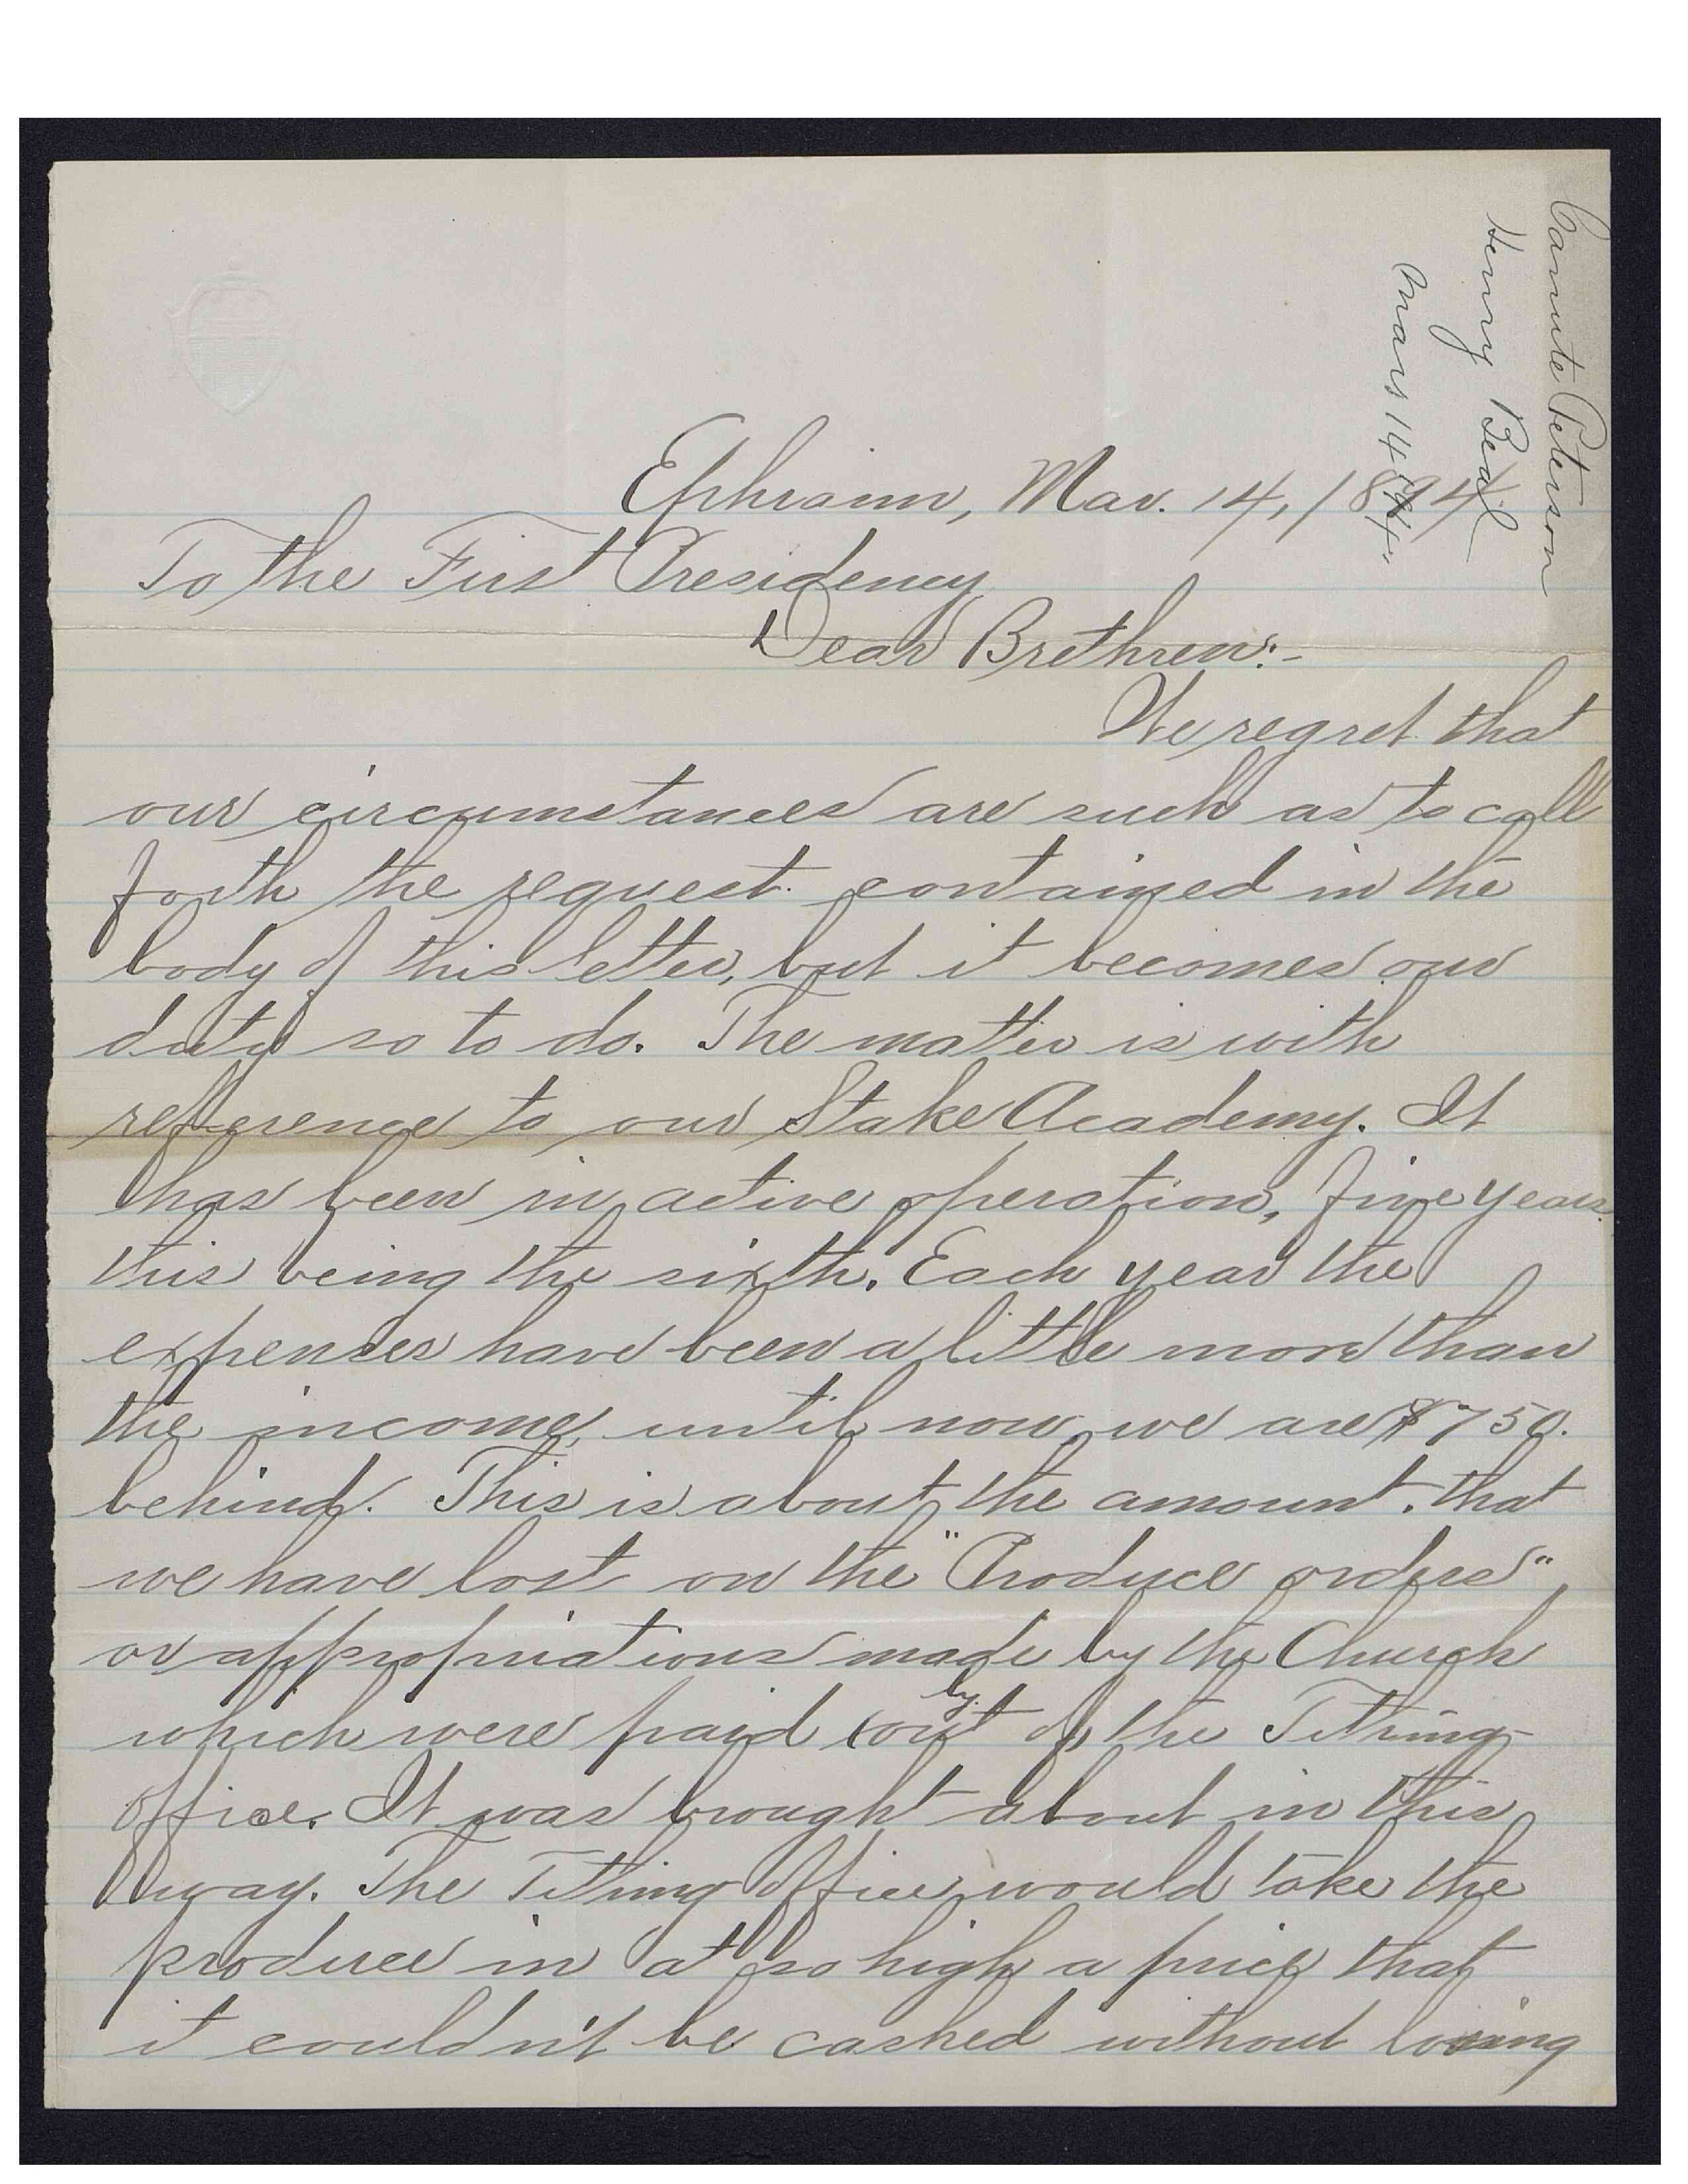 Canute Peterson
Henry Beal
Mars 14 94"
Ephraim, Mar. 14, 1894
To the First Presidency
Dear Brethren:-
We regret that
our circumstances are such as to call
forth the request contained in the
body of this letter, but it becomes our
duty so to do. The matter is with
reference to our Stake Academy. It
has been in active operation, five years.
this being the sixth. Each year the
expenses have been a little more than
the income, until now we are $750.
behind. This is about the amount that
we have lost on the "Produce orders"
or appropriations made by the Church
by
which were paid (out of) the Tithing
office. It was brought about in this
way. The Tithing Office would take the
produce in at so high a price that
it couldn't be cashed without losing